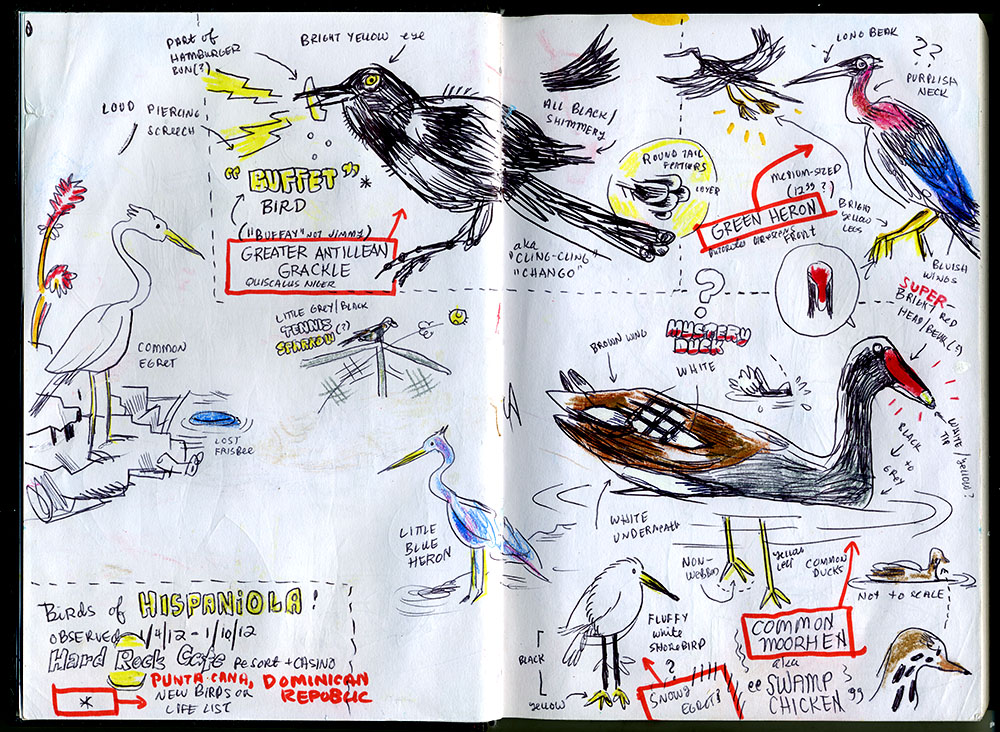 PART OF
HAMBURGER
BUN(?)
BRIGHT YELLOW eye
LOUD PIERCING
SCREECH
"BUFFET" *
BIRD
("BUFFAY" NOT JIMMY)
GREATER ANTILLEAN
GRACKLE
QUISCALUS NIGER
ALL BLACK/
SHIMMERY
aka
"CLING-CLING"
"CHANGO"
COMMON
EGRET
LOST
FRISBEE
LITTLE GREY/BLACK
TENNIS (?)
SPARROW
LITTLE
BLUE
HERON
BIRDS of HISPANIOLA!
OBSERVED 1/4/12 - 1/10/12
Hard Rock Cafe RESORT + CASINO
PUNTA-CANA, DOMINICAN
REPUBLIC
* NEW BIRDS ON
LIFE LIST
LONG BEAK
??
PURPLISH
NECK
ROUND TAIL
FEATHERS
MEDIUM-SIZED
(12"?)
GREEN HERON
FRONT
BRIGHT
YELLOW
LEGS
BLUISH
WINGS
SUPER-
BRIGHT RED
HEAD/BEAK(?)
?
MYSTERY
DUCK
BROWN WING
WHITE
WHITE
TIP
/YELLOW?
BLACK
TO
GREY
WHITE
UNDERNEATH
NON-
WEBBED
YELLOW
LEGS
COMMON
DUCKS
NOT TO SCALE
COMMON
MOORHEN
aka
"SWAMP
CHICKEN"
FLUFFY
white
SHOREBIRD
?
SNOWY
EGRET?
BLACK
yellow